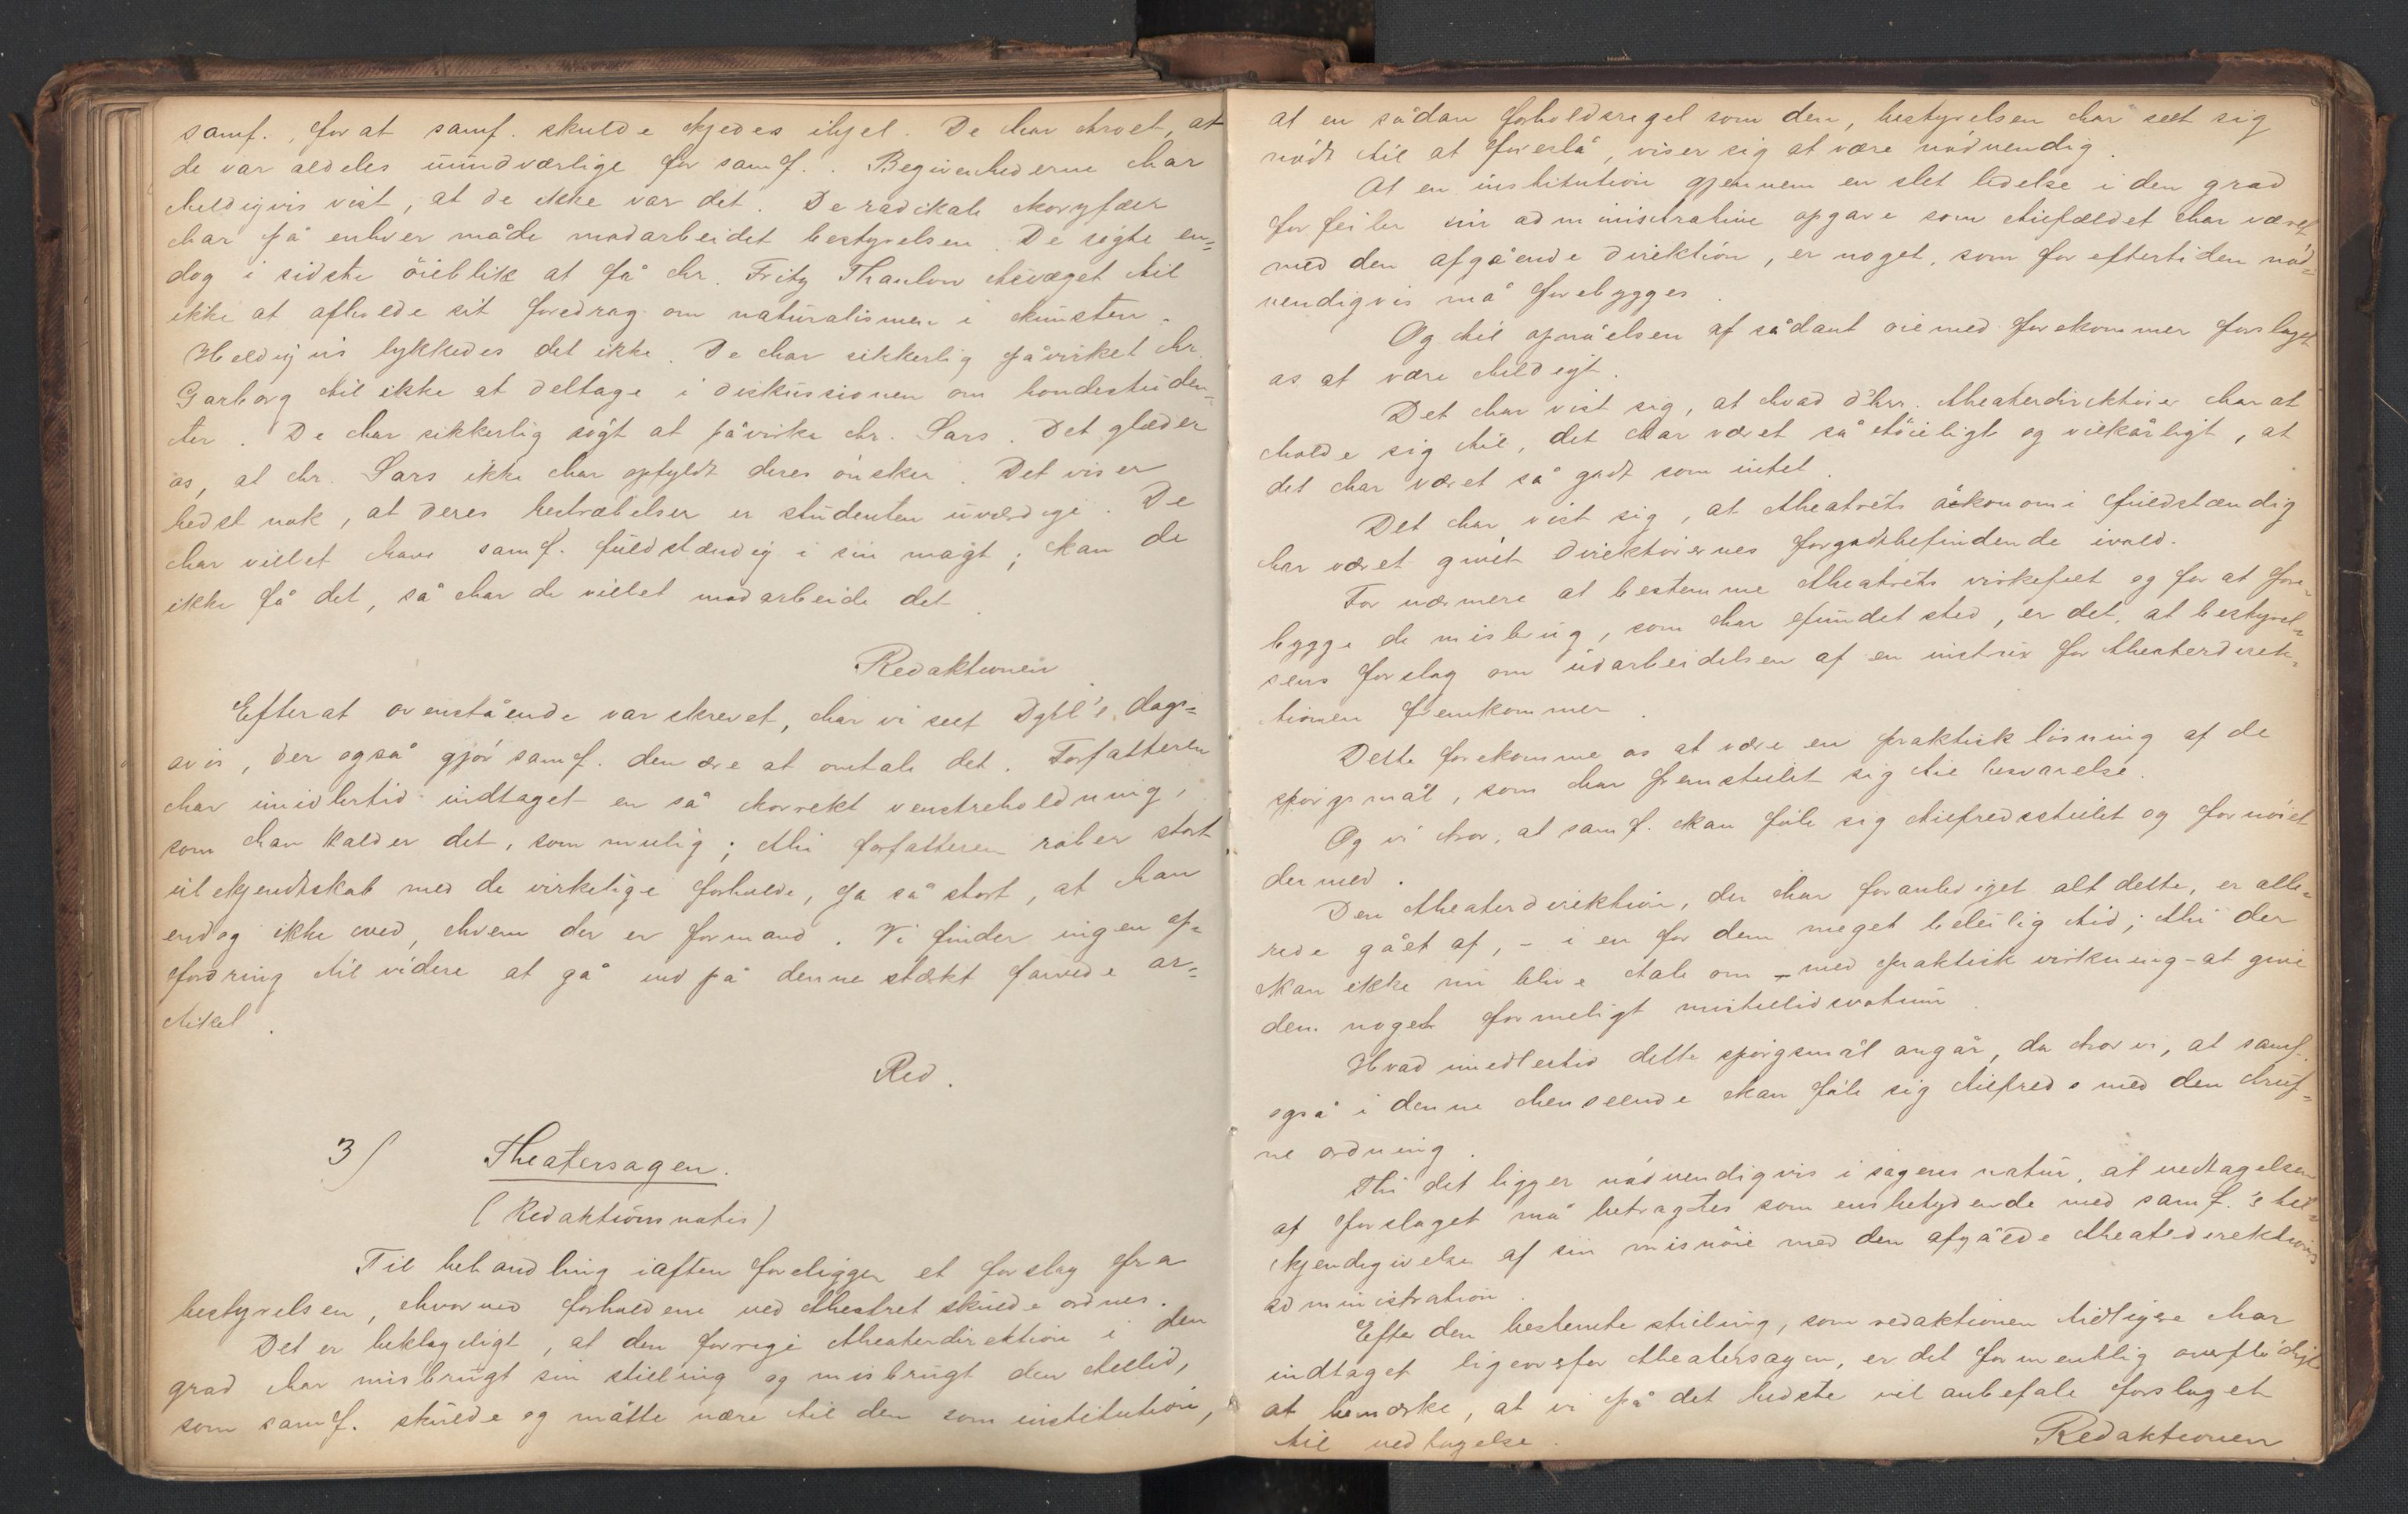 samf., for at samf. skulde kjedes ihjel. De har troet, at
de var aldeles uundværlige for samf.. Begivenhederne har
heldigvis vist, at de ikke var det. De radikale koryfæer
har på enhver måde modarbeidet bestyrelsen. De søgte en=
dog i sidste øieblik at få hr. Fritz Thaulow bevæget til
ikke at afholde sit foredrag om naturalismen i kunsten.
Heldigvis lykkedes det ikke. De har sikkerlig påvirket hr.
Garborg til ikke at deltage i diskussionen om bondestuden=
ter. De har sikkerlig søgt at påvirke hr. Sars. Det glæder
os, at hr. Sars ikke har opfyldt deres ønsker. Det viser
bedst nok, at deres bestræbelser er studenten uværdige. De
har villet have samf. fuldstændig i sin magt; kan de
ikke få det, så har de villet modarbeide det.
Redaktionen
Efterat ovenstående var skrevet, har vi seet Dgbl's, dags=
avis, der også gjør samf. den ære at omtale det. Forfatteren
har imidlertid indtaget en så korrekt venstreholdning,
som han kalder det, som mulig; thi forfatteren røber stort
ubekjendtskab med de virkelige forholde, ja så stort, at han
endog ikke ved, hvem der er formand. Vi finder ingen op=
fordring til videre at gå ind på denne stærkt farvede ar=
tikel.
Red.
3/ Theatersagen.
(Redaktionsnotis)
Til behandling iaften foreligger et forslag fra
bestyrelsen, hvorved forholdene ved theatret skulde ordnes.
Det er beklageligt, at den forrige theaterdirektion i den
grad har misbrugt sin stilling og misbrugt den tillid,
som samf. skulde og måtte nære til den som institution,
at en sådan forholdsregel som den, bestyrelsen har seet sig
nødt til at foreslå, viser sig at være nødvendig.
At en institution gjennem en slet ledelse i den grad
forfeiler sin administrative opgave som tilfældet har været
med den afgående direktion, er noget, som for eftertiden nød=
vendigvis må forebygges.
Og til opnåelsen af sådant øiemed forekommer forslaget
os at være heldigt.
Det har vist sig, at hvad d'hrr. theaterdirektører har at
holde sig til, det har været så tøieligt og vilkårligt, at
det har været så godt som intet.
Det har vist sig, at theatrets økonomi fuldstændig
har været givet direktørernes forgodtbefindende ivold.
For nærmere at bestemme theatrets virkefelt og for at fore=
bygge de misbrug, som har fundet sted, er det, at bestyrel=
sens forslag om udarbeidelsen af en instrux for theaterdirek=
tionen fremkommer.
Dette forekomme os at være en praktisk løsning af de
spørgsmål, som har fremstillet sig til besvarelse.
Og vi tror, at samf. kan føle sig tilfredsstillet og fornøiet
dermed.
Den theaterdirektion, der har foranlediget alt dette, er alle=
rede gået af, - i en for dem meget beleilig tid; thi der
kan ikke nu blive tale om - med praktisk virkning - at give
dem noget formeligt mistillidsvotum.
Hvad imidlertid dette spørgsmål angår, da tror vi, at samf.
også i denne henseende kan føle sig tilfreds med den truf=
ne ordning.
Thi det ligger nødvendigvis i sagens natur, at vedtagelsen
af forslaget må betragtes som ensbetydende med samf.'s til=
kjendegivelse af sin misnøie med den afgåede theaterdirektions
administration.
Efter den bestemte stilling, som redaktionen tidligere har
indtaget ligeoverfor theatersagen, er det formentlig overflødigt
at bemærke, at vi på det bedste vil anbefale forslaget
til vedtagelse.
Redaktionen